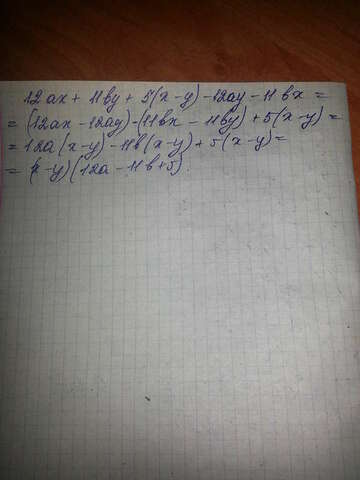 12ax + 11by + 5(x-y) - 12ay - 11bx =
= (12ax - 12ay) - (11bx - 11by) + 5(x-y) =
= 12a(x-y) - 11b(x-y) + 5(x-y) =
= (x-y)(12a - 11b + 5)